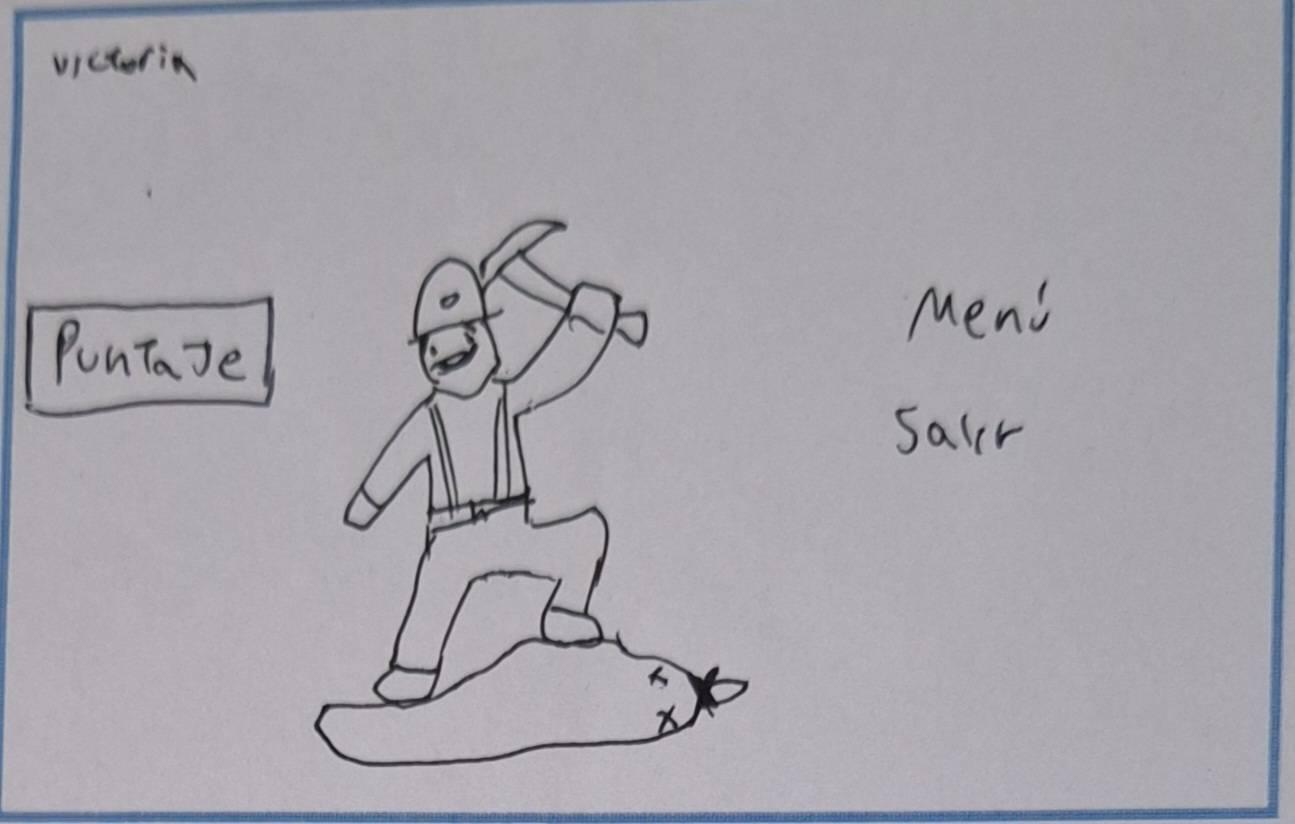 victoria
Puntaje
Menú
Salir